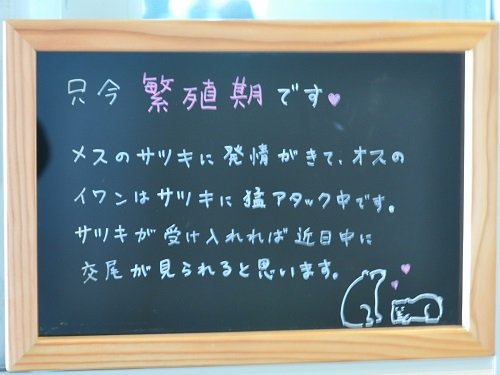 只今 繁殖期です♥
メスのサツキに発情がきて、オスの
イワンはサツキに猛アタック中です。
サツキが受け入れれば近日中に
交尾が見られると思います。